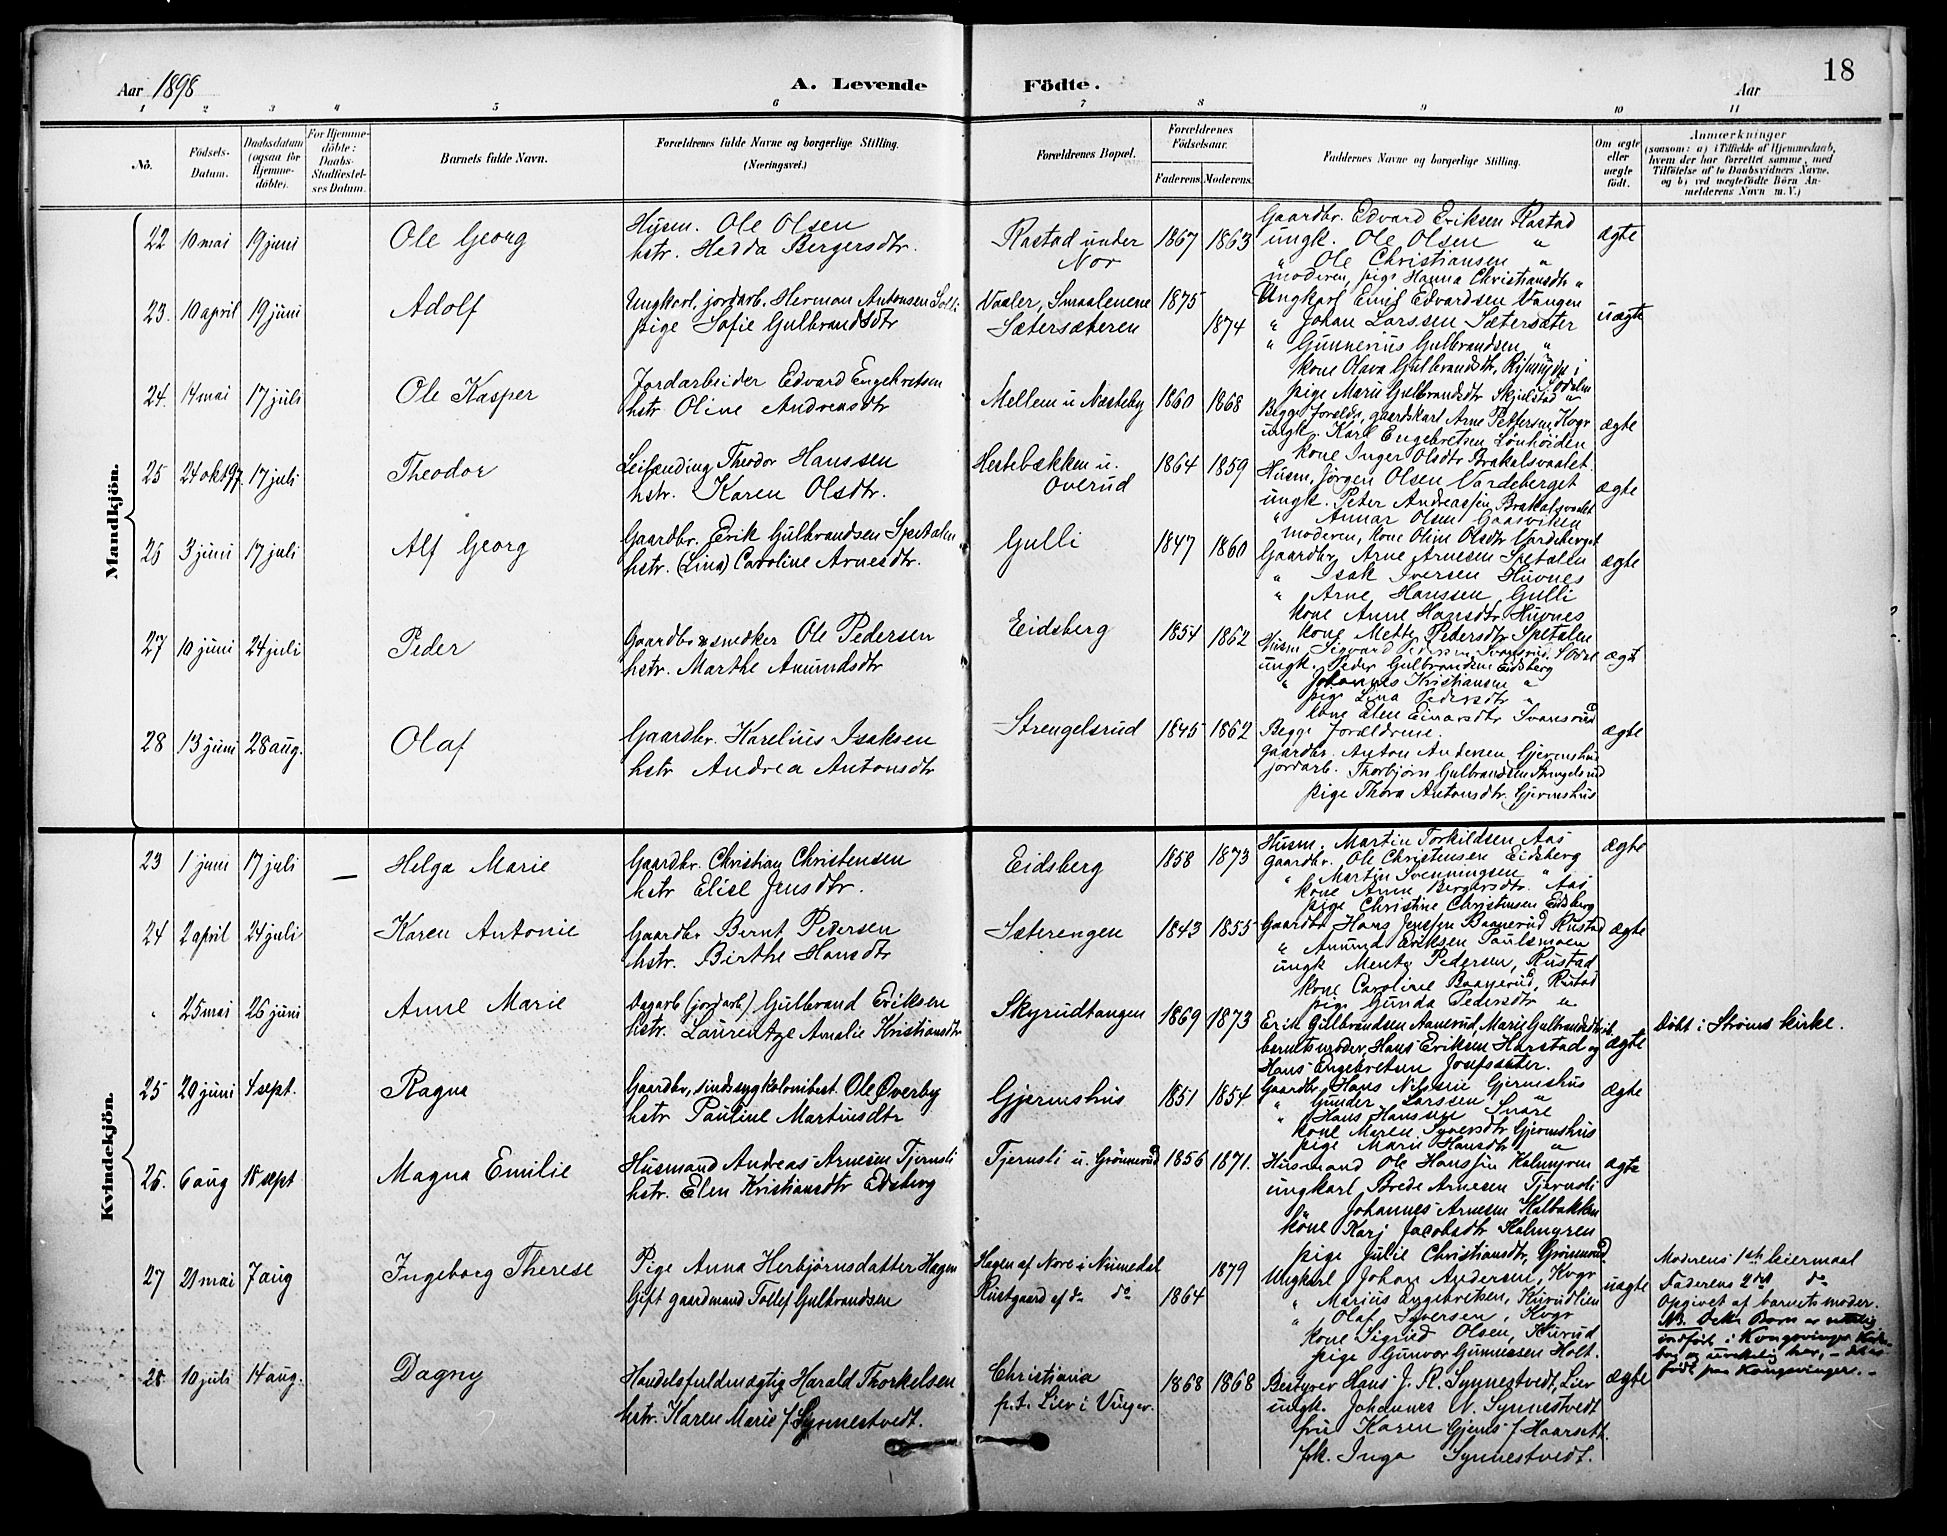 18
Aar 1898
A. Levende Födte.
Aar
1 2 3 4 5 6 7 8 9 10 11
No.
Födsels-Datum.
Daabsdatum (ogsaa for Hjemme-döbte).
For Hjemme-döbte: Daabs-Stadfæstel-ses Datum.
Barnets fulde Navn.
Forældrenes fulde Navne og borgerlige Stilling. (Næringsvei.)
Forældrenes Bopæl.
Forældrenes Födselsaar.
Faderens. Moderens.
Faddernes Navne og borgerlige Stilling.
Om ægte eller uægte födt.
Anmærkninger
(saasom: a) i Tilfælde af Hjemmedaab,
hvem der har forrettet samme, med
Tilföielse af to Daabsvidners Navne,
og b) ved uægtefödte Börn An-
melderens Navn m. V.)
Mandkjön.
22 10 mai 19 juni Ole Georg
Husm. Ole Olsen
hstr. Hedda Bergersdtr.
Rastad under Nor
1867 1863
Gaardbr. Edvard Eriksen Rastad
ungk. Ole Olsen "
" Ole Christiansen "
moderen, pige Hanna Christiansdtr "
ægte
23. 10 april 19 juni Adolf
Ungkarl, jordarb. Herman Antonsen Solli
pige Sofie Gulbrandsdtr
Vaaler, Smaalenene
Sætersæteren
1875
1874
Ungkarl Emil Edvardsen Vangen
" Johan Larssen Sætersæter
" Gunnerius Gulbrandsen "
kone Olava Gulbrandsdtr,
pige Marie Gulbrandsdtr Skjulstad
uægte
24. 14 mai 17 juli Ole Kasper
Jordarbeider Edvard Engebretsen
hstr Oline Andreasdtr
Mellem u Næsteby
1860 1868
Begge foreldre, gaardskarl Arne Pettersen, Kvgr
ungk. Karl Engebretsen Lönhöiden
kone Inger Olsdtr Brakalsvaalet
ægte
25 24 okt 97 17 juli Theodor
Leilending Theodor Hanssen
hstr. Karen Olsdtr.
Hestebækken u. Overud
1864 1859
Husm. Jörgen Olsen Vardeberget
ungk. Peter Andreassen Brakalsvaalet
" Annar Olsen Gaasviken
moderen, kone Oline Olsdtr Vardeberget
ægte
26 3 juni 17 juli Alf Georg
Gaardbr. Erik Gulbrandsen Spetalen
hstr. (Lina) Caroline Arnesdtr.
Gulli
1847 1860
Gaardbr. Arne Arnesen Spetalen
" Isak Iversen Huvnes
" Arne Hanssen Gulli
kone Anne Hansdtr Huvnes
kone Mette Pedersdtr Spetalen
ægte
27 10 juni 24 juli Peder
Gaardbr & snedker Ole Pedersen
hstr. Marthe Amundsdtr
Eidsberg
1854 1862
Husm Sigvard Pedersen
ungk. Peder Gulbrandsen Eidsberg
" Johannes Kristiansen "
pige Lina Pedersdtr "
kone Elen Einarsdtr Svansrud
ægte
28 13 juni 28 aug. Olaf
Gaardbr. Karelius Isaksen
hstr Andrea Antonsdtr
Strengelsrud
1845 1862
Begge Forældrene.
gaardbr. Anton Andersen Gjermshus
jordarb. Thorbjörn Gulbrandsen Strengelsrud
pige Thora Antonsdtr. Gjermshus
ægte
Kvindekjön.
23 1 juni 17 juli — Helga Marie
Gaardbr. Christian Christensen
hstr Elise Jensdtr.
Eidsberg
1858 1873
Husm. Martin Torkildsen Aas
gaardbr. Ole Christensen Eidsberg
" Martin Svenningsen "
kone Anne Bergersdtr. Aas
pige Christine Christensen Eidsberg
ægte
24 2 april 24 juli Karen Antonie
Gaardbr Bernt Pedersen
hstr. Birthe Hansdtr
Sæterengen
1843 1855
Gaardbr Hans Jenssen Baanerud Rustad
" Amund Eriksen Paulsmoen
ungk Mentz Pedersen, Rustad
kone Caroline Baanerud, Rustad
pige Gunda Pedersdtr "
ægte
" 25 mai 26 juni Anne Marie
Dagarb (jordarb) Gulbrand Eriksen
hstr. Laurentze Amalie Kristiansdtr
Skyrudtangen
1869 1873
Erik Gulbrandsen Aanerud, Marie Gulbrandsdtr ib.
barnets moder, Hans Eriksen Harstad og
Hans Engebretsen Josefsæter.
ægte
Döbt i Ströms kirke.
25 20 juni 4 sept. Ragna
Gaardbr, sindssygkolonibest. Ole Överby
hstr Pauline Martinsdtr
Gjermshus
1851 1854
Gaardbr. Hans Nilssen Gjermshus
" Gunder Larssen "
" Hans Hanssen Snare
kone Maren Syversdtr Gjermshus
pige Marie Hansdtr "
ægte
26. 6 aug 18 sept Magna Emilie
Husmand Andreas Arnesen Tjernsli
hstr. Elen Kristiansdtr Edsberg
Tjernsli u. Grönnerud
1856 1871.
Husmand Ole Hanssen Kalmyren
ungkarl Brede Arnesen Tjernsli
" Johannes Arnesen Kalbakken
kone Karj Jacobsdtr Kalmyren
pige Julie Christiansdtr, Grönnerud
ægte
27 21 mai 7 aug Ingeborg Therese
Pige Anna Herbjörnsdatter Hagen
Gift gaardmand Tollef Gulbrandsen
Hagen af Nore i Numedal
Rustgaard af do do
1879
1864
Ungkarl Johan Andersen, Kvgr
" Marius Engebretsen, Kurudlien
" Olaf Iversen, Kvgr
kone Sigrid Olsen, Kurud
pige Gunvor Gunnesen Holt.
uægte
Moderens 1ste leiermaal
Faderens 2det do
Opgivet af barnets moder.
NB. Dette Barn er
indfört i Kongsvinger Kirke-
bog og urettelig her, – det er
födt paa Kongsvinger. –
28 10 juli 14 aug. Dagny
Handelsfuldmægtig Harald Thorkelsen
hstr. Karen Marie f. Synnestvedt.
Christiania
p.t. Lier i Vinger.
1868 1868
Bestyrer Hans J. R. Synnestvedt, Lier
ungk. Johannes N. Synnestvedt
fru Karen Gjems f. Haarsett.
frk. Inga Synnestvedt.
ægte